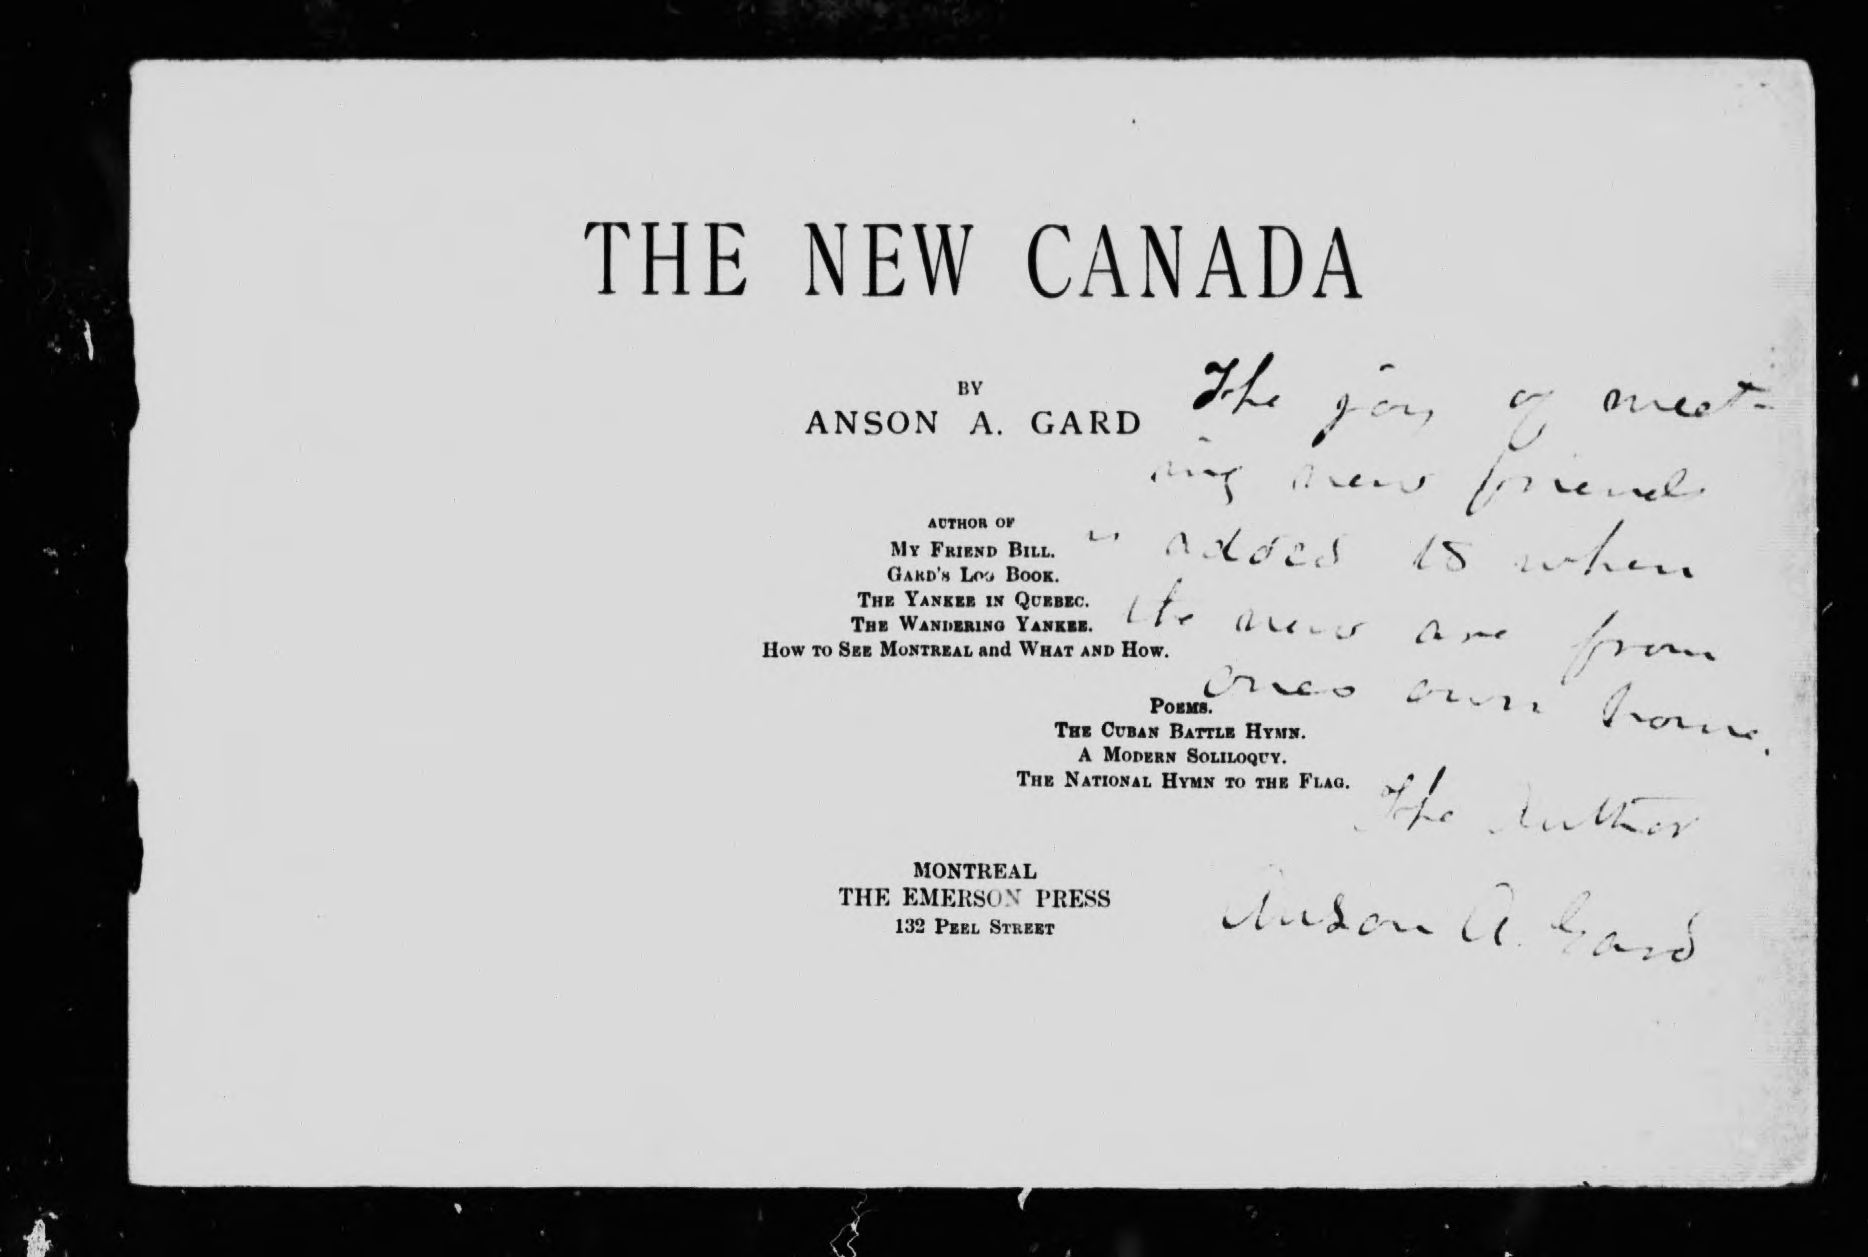 THE NEW CANADA
BY
ANSON A. GARD
AUTHOR OF
MY FRIEND BILL.
GARD'S LOG BOOK.
THE YANKEE IN QUEBEC.
THE WANDERING YANKEE.
HOW TO SEE MONTREAL and WHAT AND HOW.
POEMS.
THE CUBAN BATTLE HYMN.
A MODERN SOLILOQUY.
THE NATIONAL HYMN TO THE FLAG.
MONTREAL
THE EMERSON PRESS
132 PEEL STREET
The joy of meet-
ing new friends
is added to when
the new are from
ones own home.
The Author
Anson A. Gard